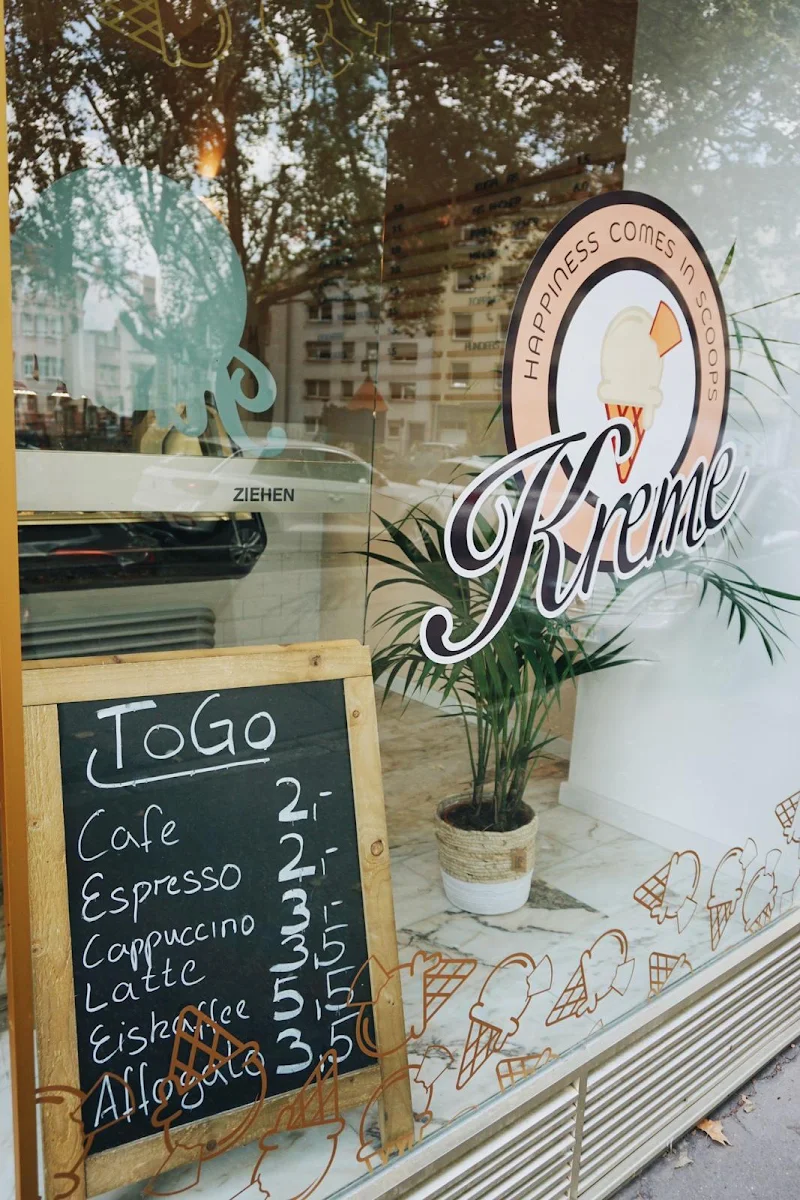 HAPPINESS COMES IN SCOOPS
Kreme
ZIEHEN
ToGo
Cafe 2,-
Espresso 2,-
Cappuccino 3,-
Latte 3,5
Eiskaffee 5,5
Affogato 3,5